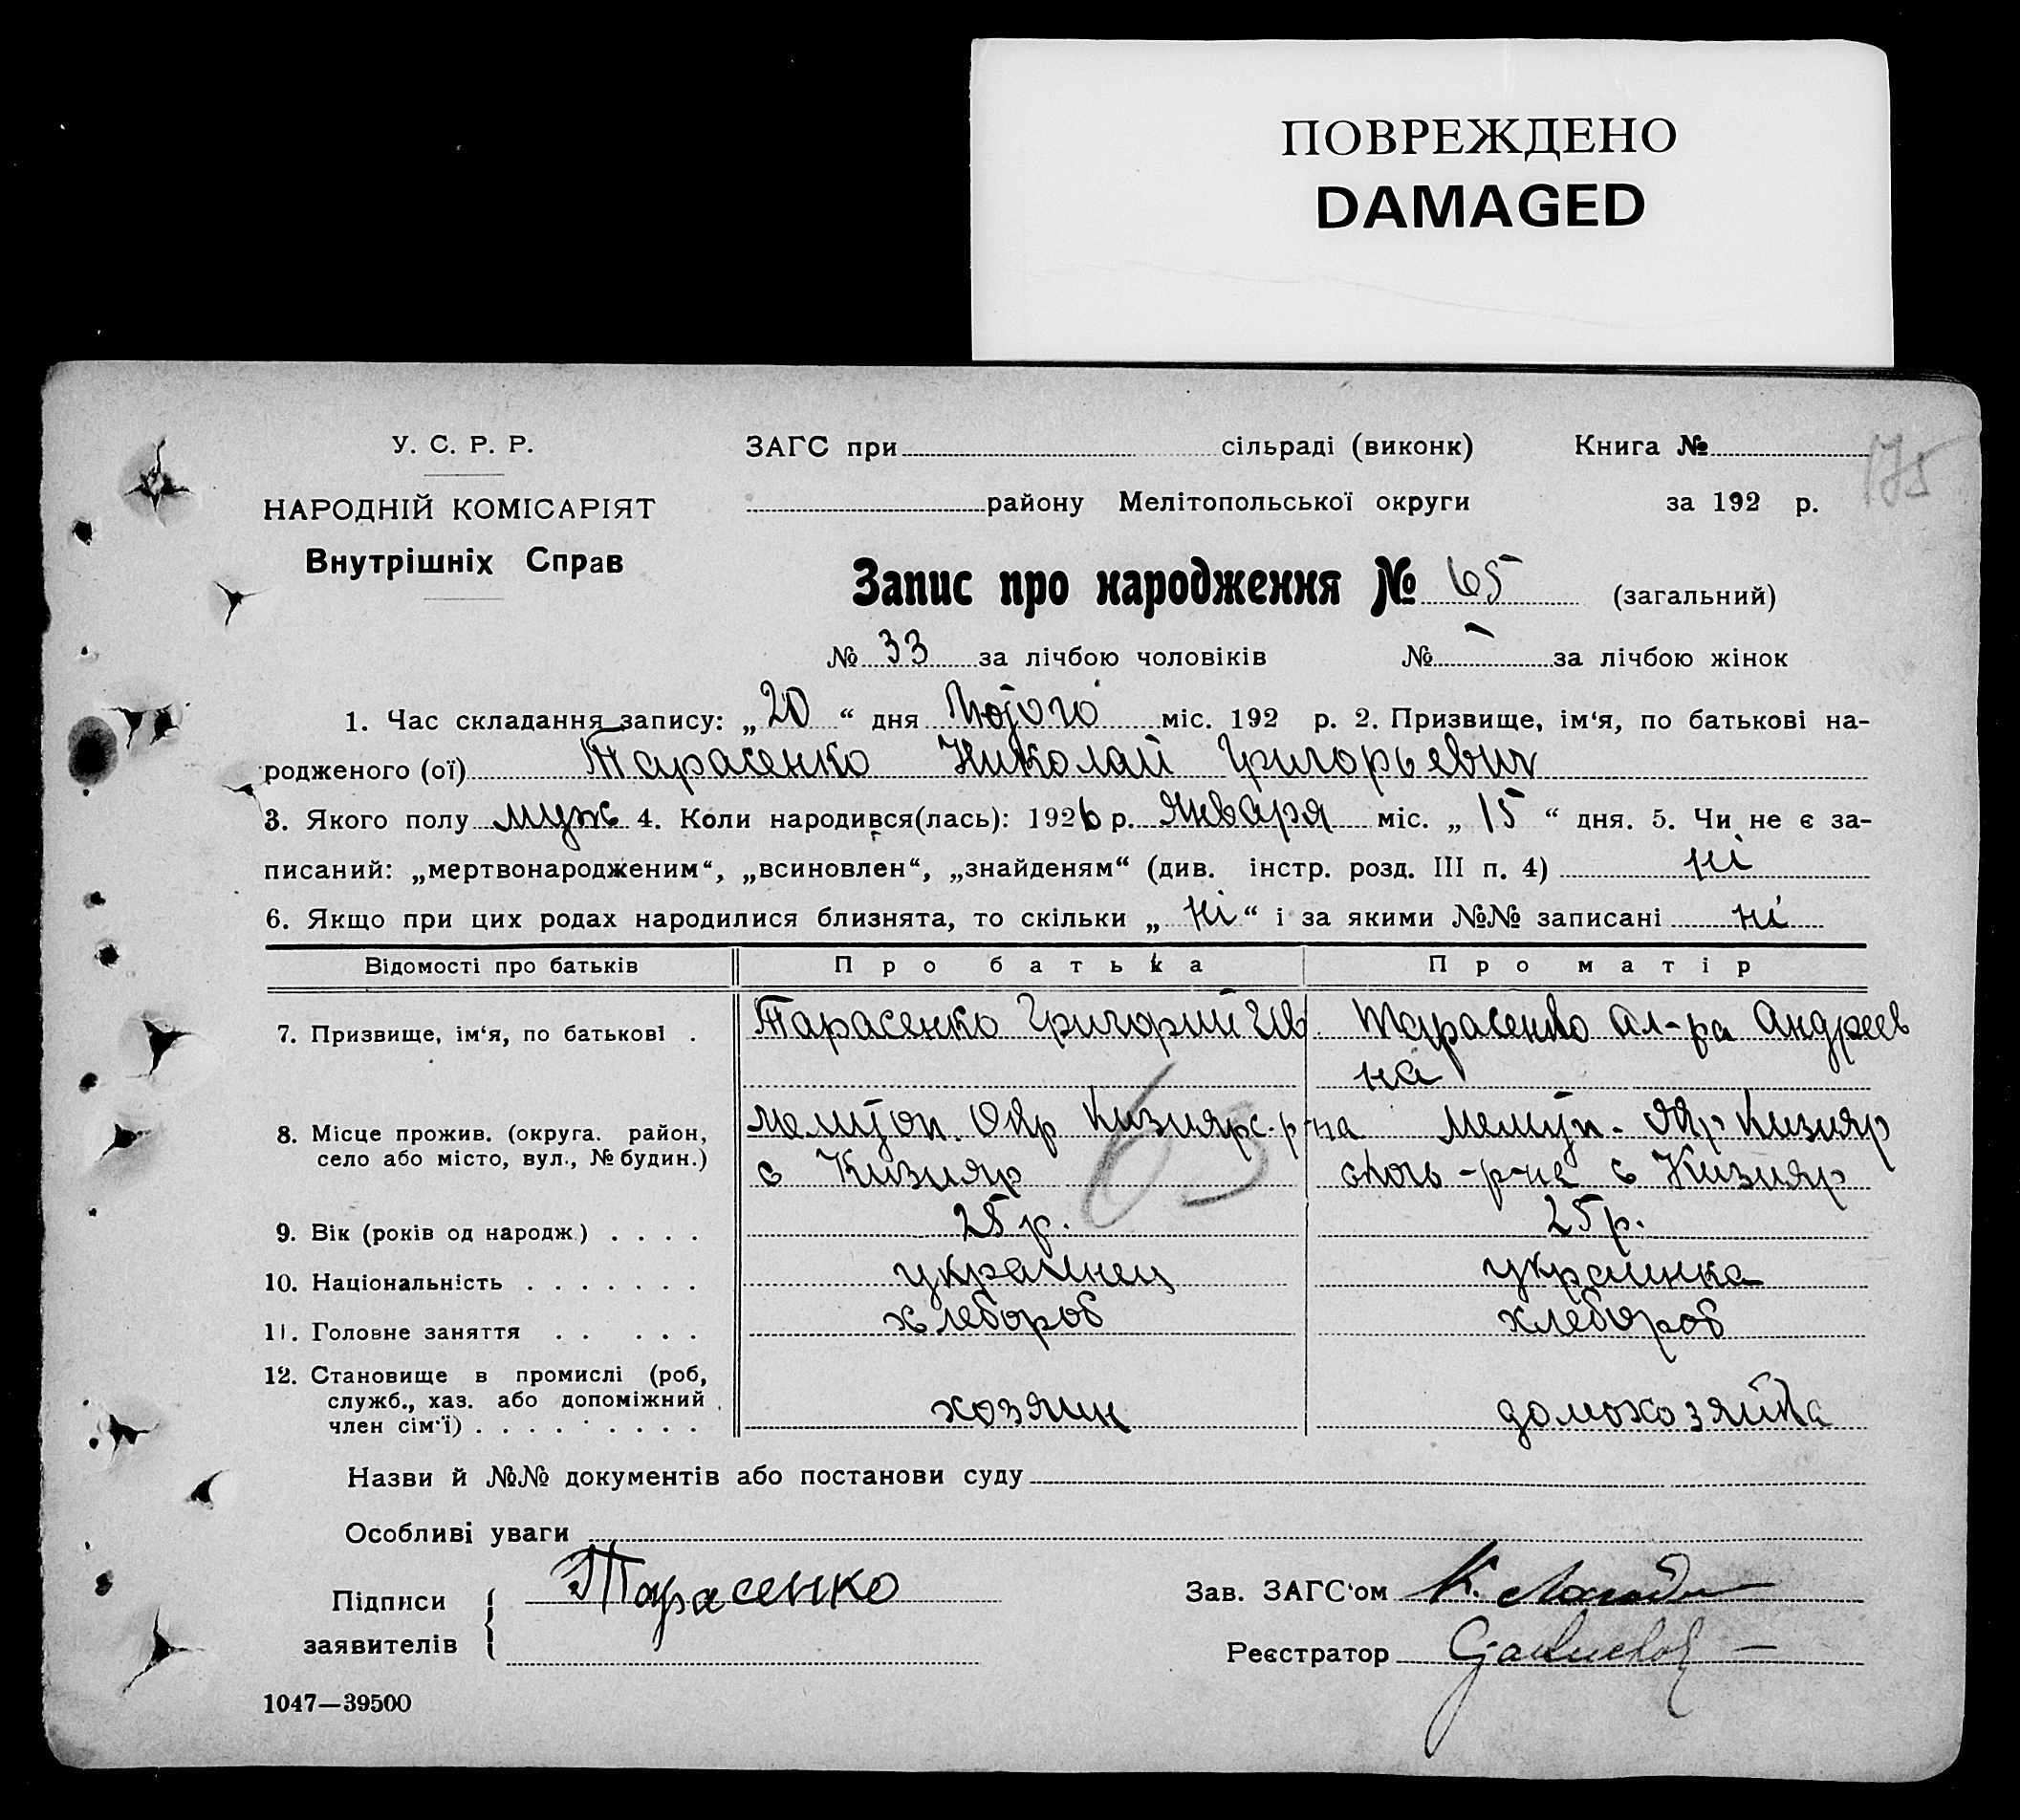 ПОВРЕЖДЕНО
DAMAGED
У. С. Р. Р.
НАРОДНІЙ КОМІСАРІЯТ
Внутрішніх Справ
ЗАГС при сільраді (виконк) Книга №
175
району Мелітопольської округи за 192 р.
Запис про народження № 65 (загальний)
№ 33 за лічбою чоловіків № - за лічбою жінок
1. Час складання запису: „20“ дня Лютого міс. 192 р. 2. Призвище, ім‘я, по батькові на-
родженого (ої) Тарасенко Николай Григорьевич
3. Якого полу муж 4. Коли народився(лась): 1926 р. января міс. „15“ дня. 5. Чи не є за-
писаний: „мертвонародженим“, „всиновлен“, „знайденям“ (див. інстр. розд. III п. 4) ні
6. Якщо при цих родах народилися близнята, то скільки „ні“ і за якими №№ записані ні
Відомості про батьків Про батька Про матір
7. Призвище, ім‘я, по батькові . Тарасенко Григорий Ив Тарасенко Ал-ра Андреев
на
8. Місце прожив. (округа. район, Мелитоп. Окр Кизиярс. р-на Мелитп. Окр Кизияр
село або місто, вул., № будин.) с Кизияр ского р-на с Кизияр
65
9. Вік (років од народж.) . . . . 25 р. 25 р.
10. Національність . . . . . . . украинец украинка
11. Головне заняття . . . . . хлебороб хлебороб
12. Становище в промислі (роб,
служб., хаз. або допоміжний
член сім‘ї) . . . . . . . . хозяин домохозяйка
Назви й №№ документів або постанови суду
Особливі уваги
Підписи
заявителів Тарасенко
Зав. ЗАГС‘ом К.
Реєстратор
1047—39500